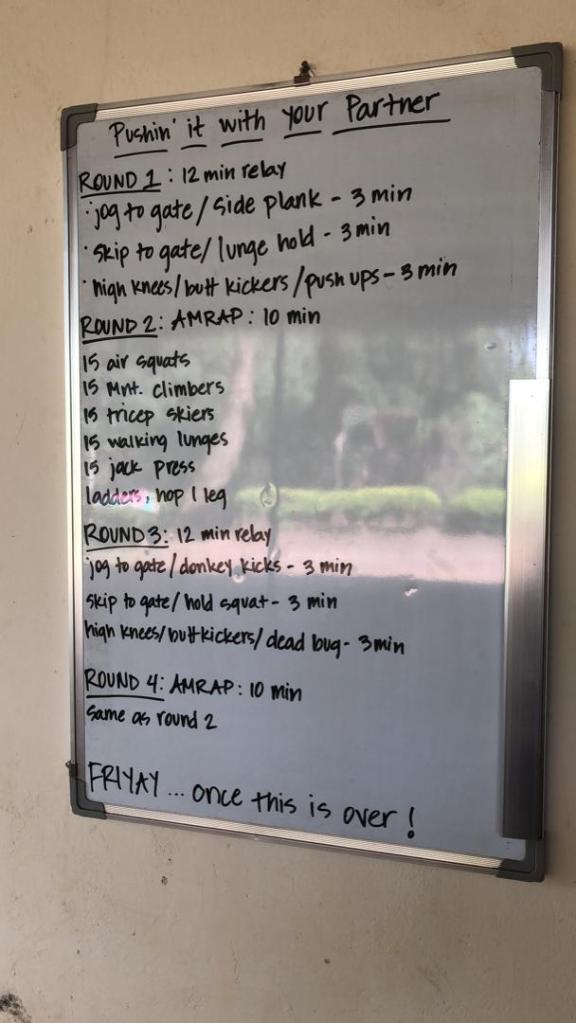 Pushin' it with your Partner
ROUND 1: 12 min relay
· jog to gate / side plank - 3 min
· skip to gate / lunge hold - 3 min
· high knees / butt kickers / push ups - 3 min
ROUND 2: AMRAP: 10 min
15 air squats
15 Mnt. climbers
15 tricep skiers
15 walking lunges
15 jack press
ladders, hop 1 leg
ROUND 3: 12 min relay
jog to gate / donkey kicks - 3 min
skip to gate / hold squat - 3 min
high knees / butt kickers / dead bug - 3 min
ROUND 4: AMRAP: 10 min
same as round 2
FRIYAY ... once this is over!